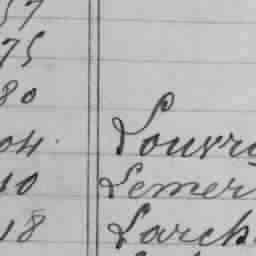 57
75
80
04. Louvr
10 Lemer
18 Larch